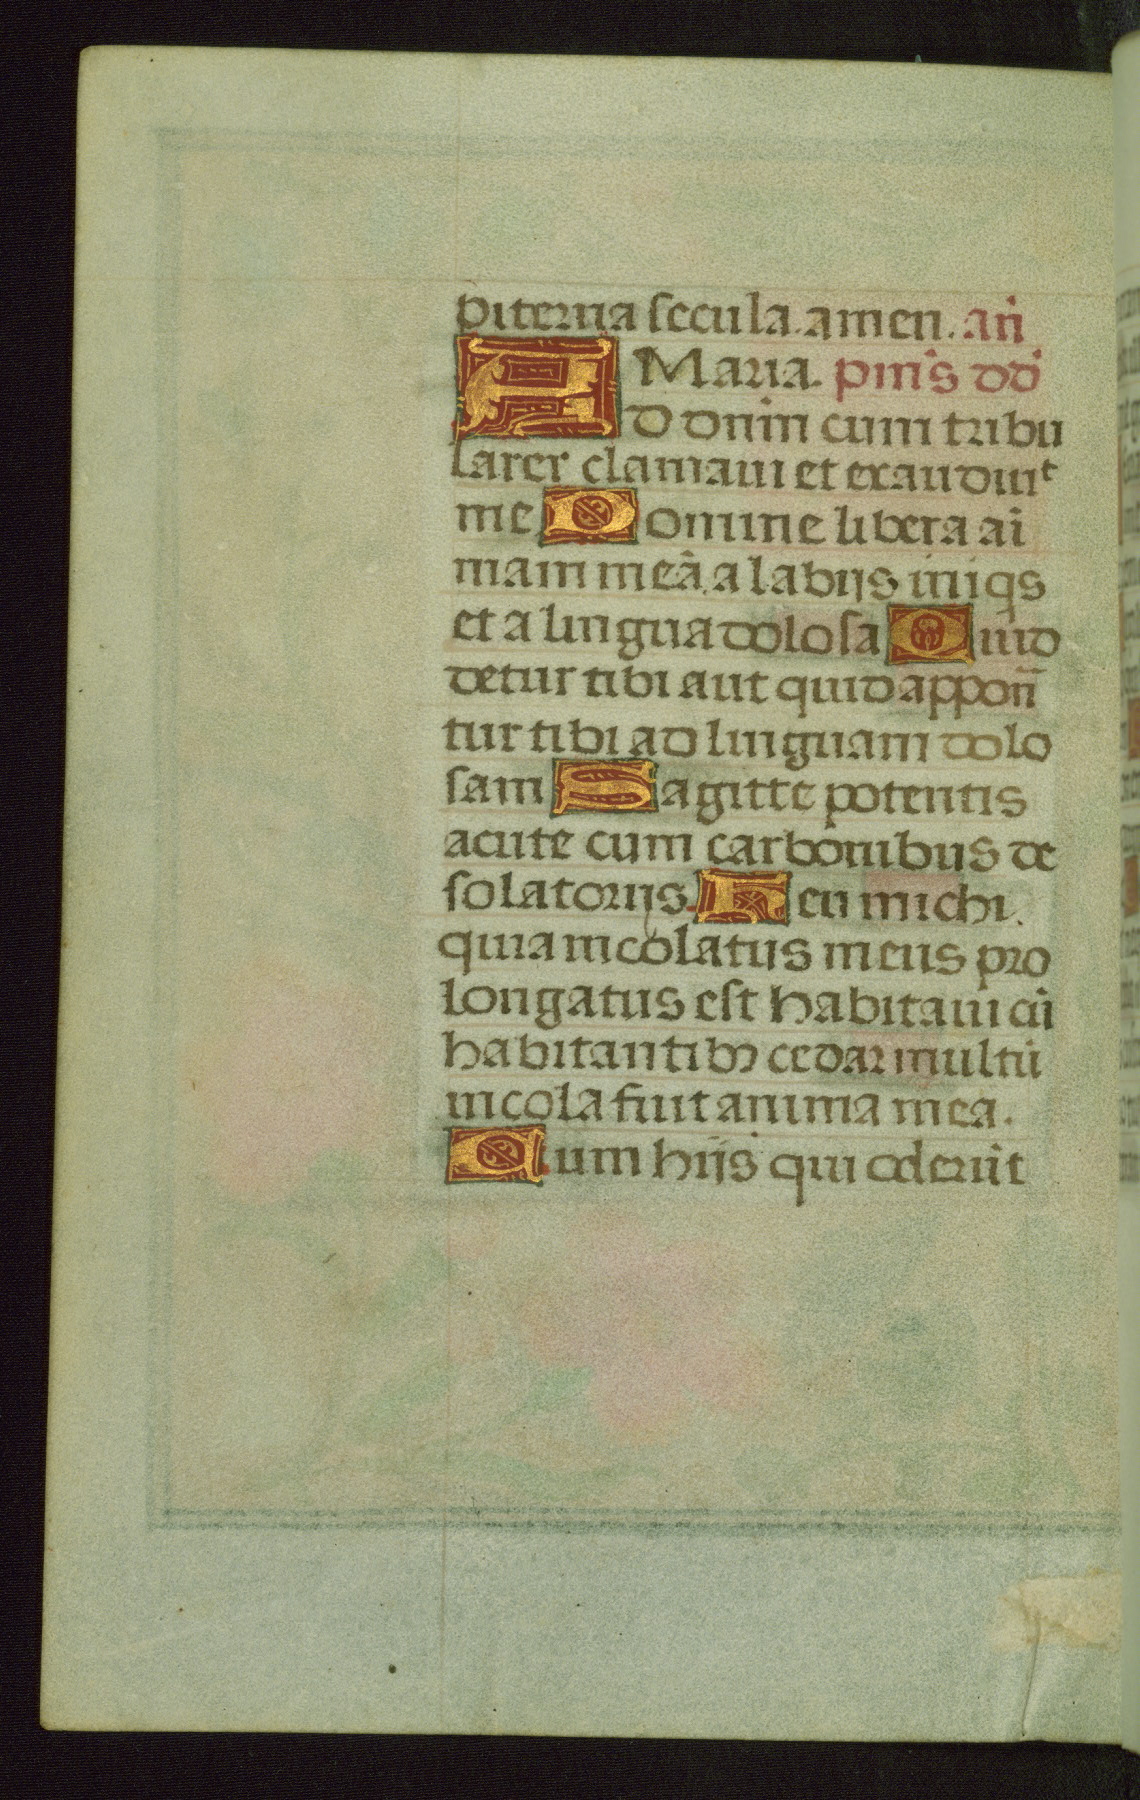 piterna secula. amen. añ
Maria. pm̃s dd̃
Ad dnm̃ cum tribu
larer clamaui et exaudiuit
me Domine libera ai
mam meã. a labijs iniqs
et a lingua dolosa Quid
detur tibi aut quid appoñ
tur tibi ad linguam dolo
sam Sagitte potentis
acute cum carbonibus de
solatorijs. Heu michi.
quia incolatus meus pro
longatus est habitaui cũ
habitantibꝫ cedar multũ
incola fiut anima mea.
Cum hijs qui oderũt